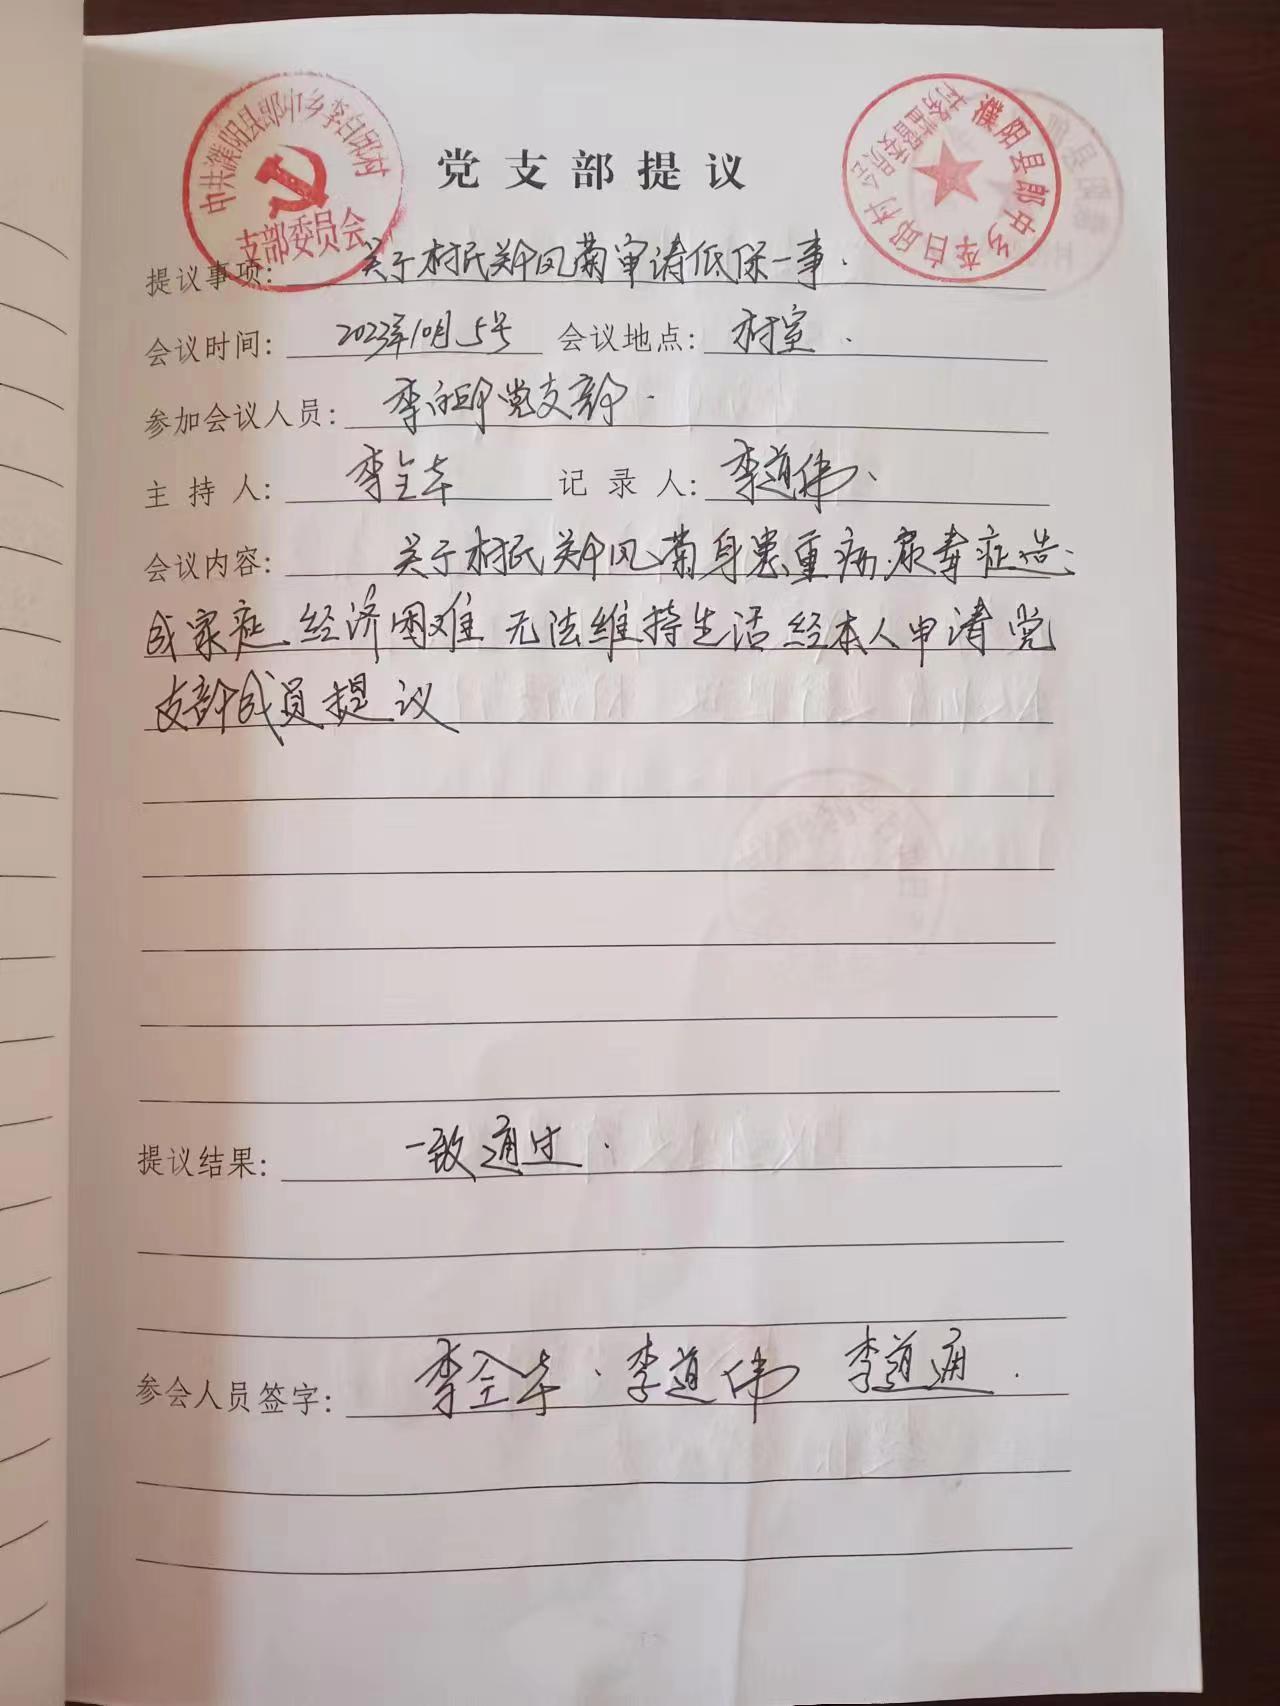 中共濮阳县郎中乡李白邱村
支部委员会
濮阳县郎中乡李白邱村务监督委员会
党支部提议
提议事项: 关于村民郑风菊申请低保一事.
会议时间: 2023年10月5号 会议地点: 村室.
参加会议人员: 李白邱党支部.
主持人: 李全东 记录人: 李道伟.
会议内容: 关于村民郑风菊身患重病.尿毒症造
成家庭经济困难 无法维持生活 经本人申请 党
支部成员提议
提议结果: 一致通过.
参会人员签字: 李全东. 李道伟 李道通.